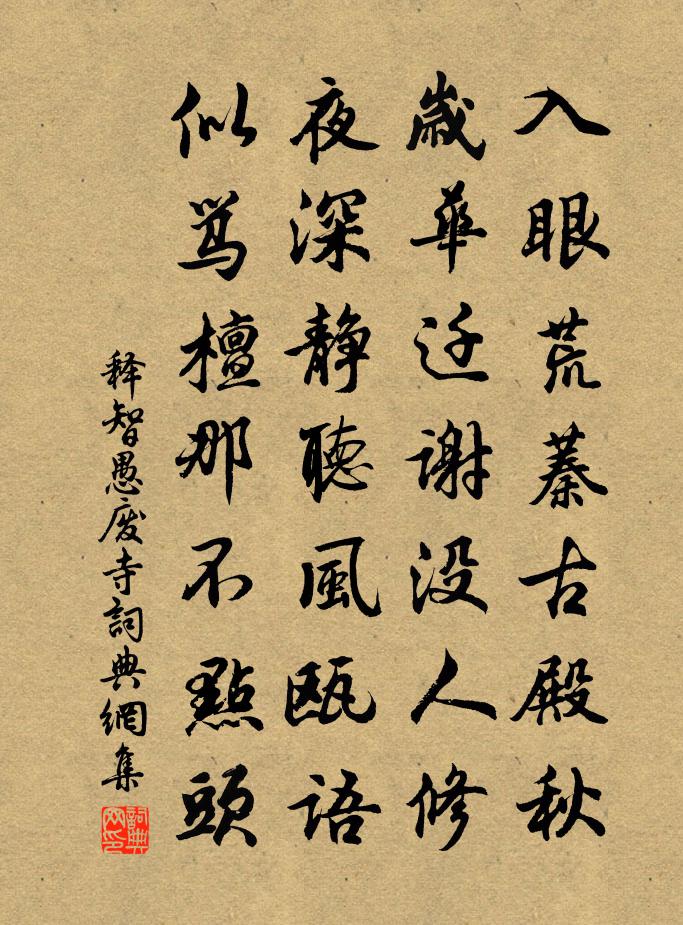 入眼荒蓁古殿秋
歲華迁謝没人修
夜深静聽風瓯語
似骂檀那不點頭
释智愚废寺詞典網集
詞典网印